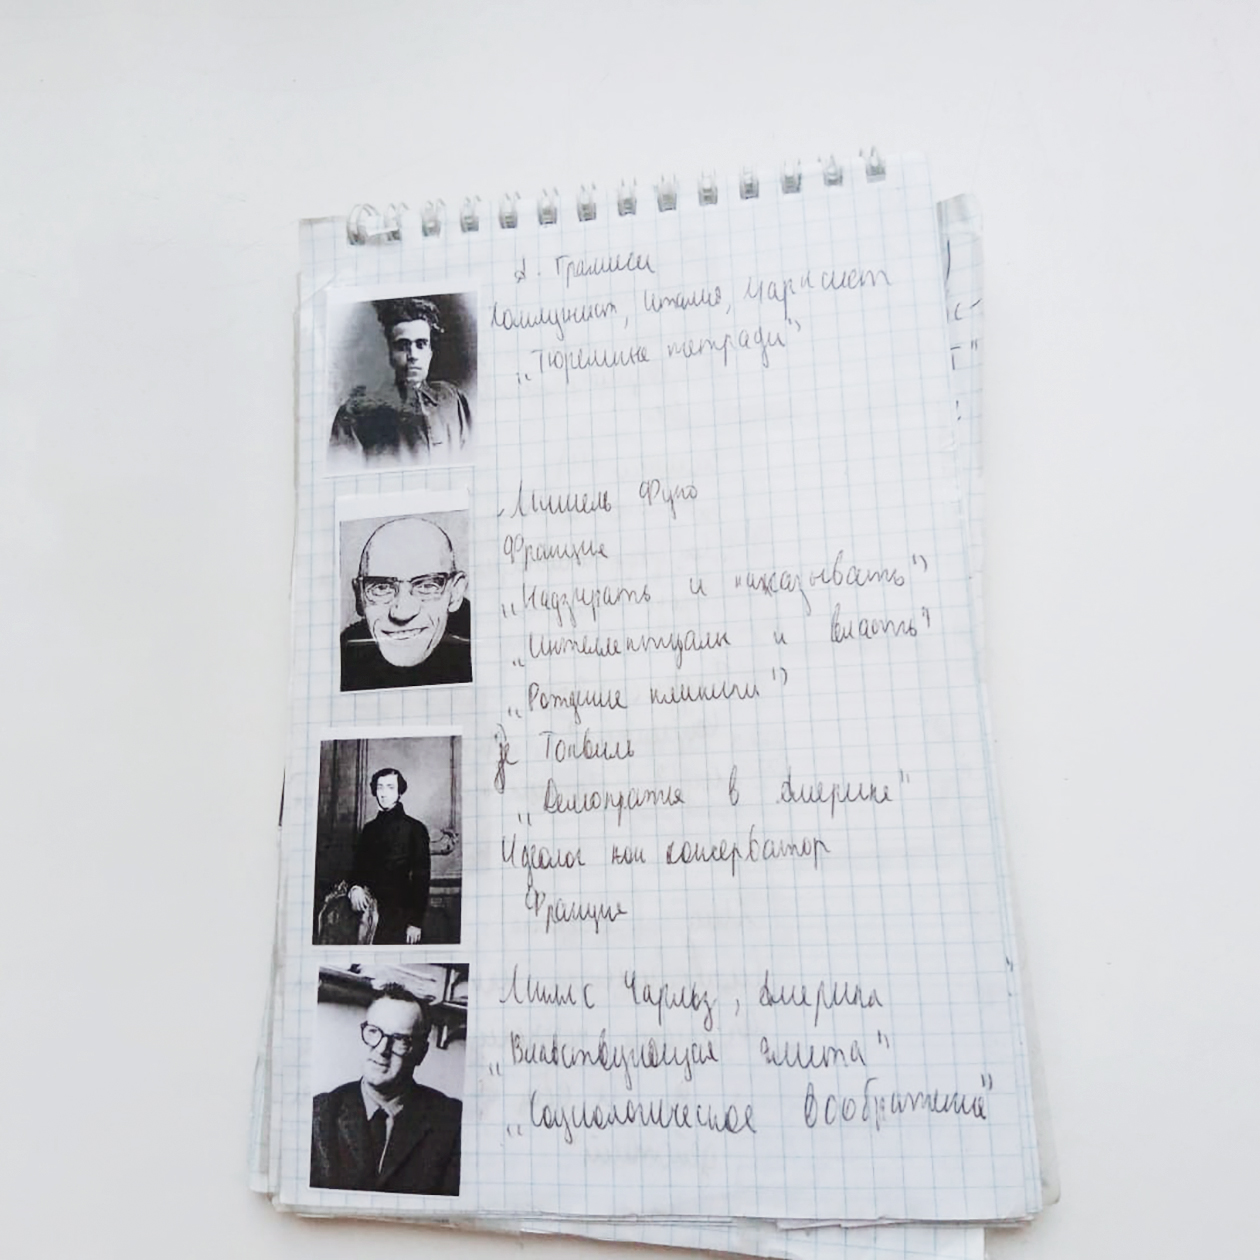 А. Грамши
Коммунист, Италия, марксист
„Тюремные тетради"
Мишель Фуко
Франция
„Надзирать и наказывать"
„Интеллектуалы и власть"
„Рождение клиники"
де Токвиль
„Демократия в Америке"
Идеолог кон консерватор
Франция
Миллс Чарльз, Америка
„Властвующая элита"
„Социологическое воображение"